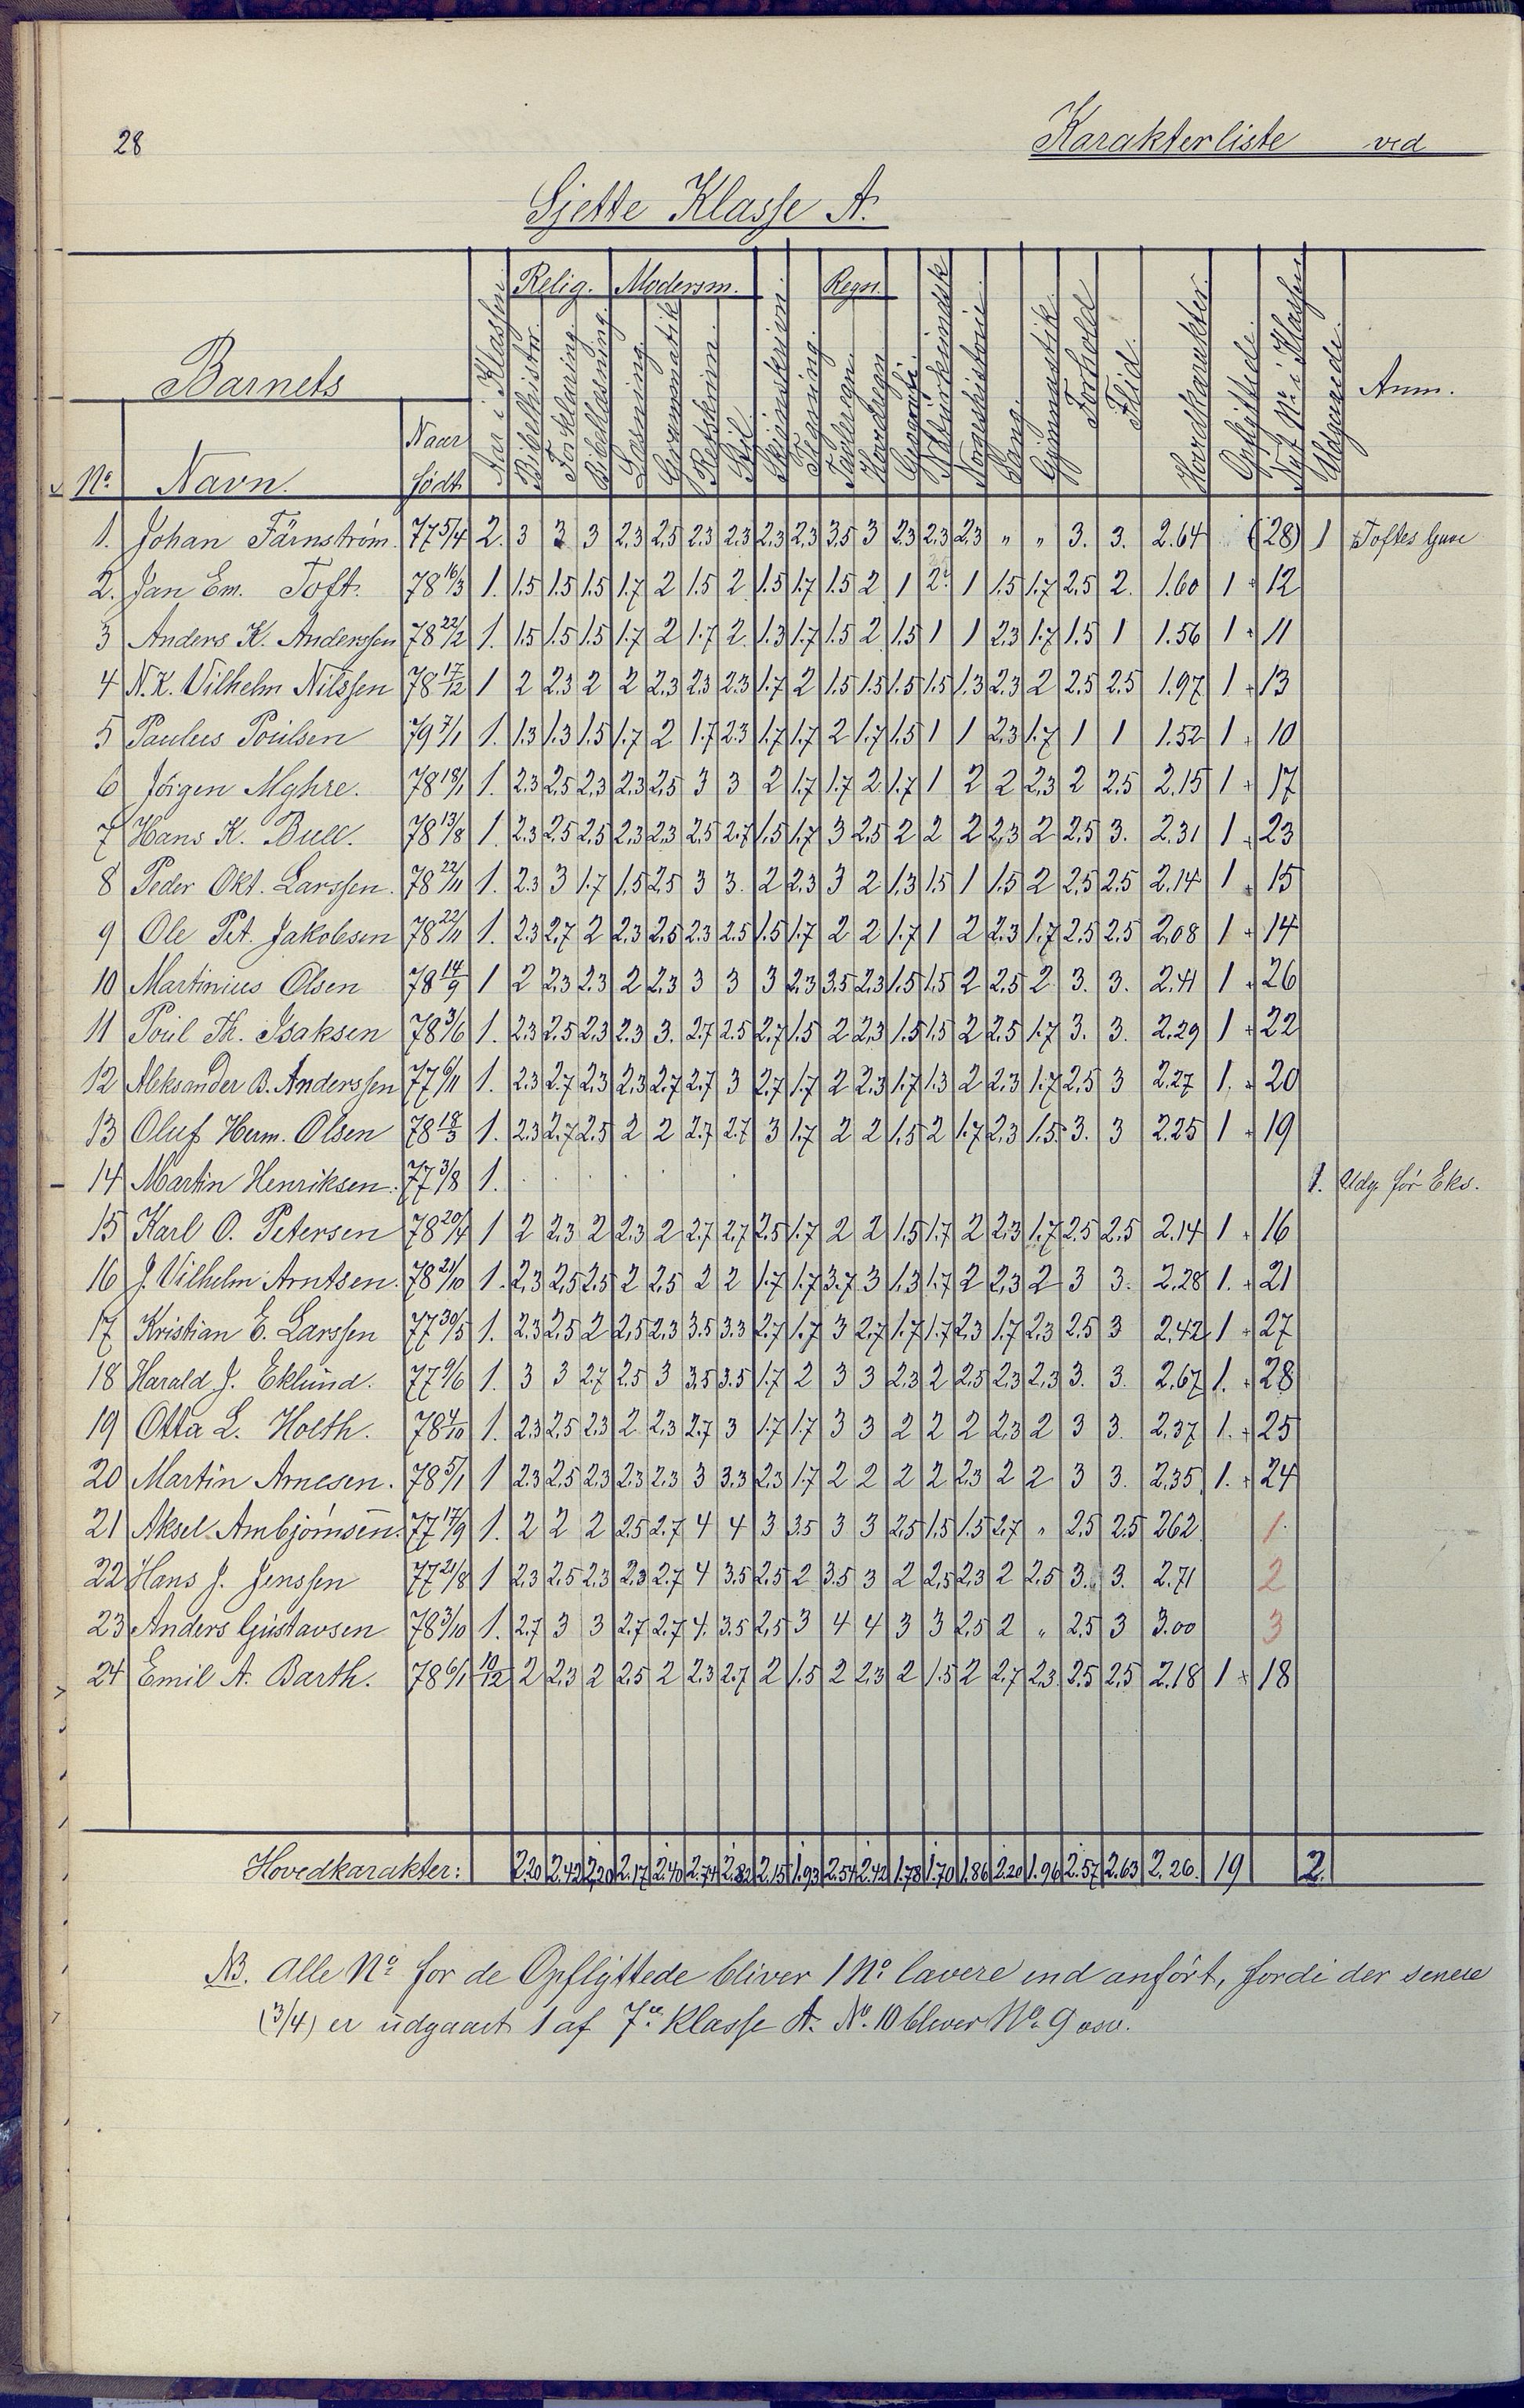 28
Karakterliste ved
Sjette Klasse A.
Barnets
No Navn. Naar Født. Aar i Klassen Relig. Bibelhistor. Forklaring. Bibellæsning. Modersm. Læsning. Grammatik Retskrivn. Stil. Skjönskrivn. Tegning. Regn. Tavleregn. Hovedregn Geografi. Naturkundsk. Norgeshistorie. Sang. Gymnastik. Forhold Flid. Hovedkarakter. Opflyttede. Nyt No i Klassen Udgaaede. Anm.
1. Johan Färnström. 77 5/4 2. 3 3 3 2.3 2.5 2.3 2.3 2.3 2.3 3.5 3 2.3 2.3 2.3 " " 3. 3. 2.64 (28) 1 Toftes Gave
2. Jan Em. Toft. 78 16/3 1. 1.5 1.5 1.5 1.7 2 1.5 2 1.5 1.7 1.5 2 1 2 1 1.5 1.7 2.5 2. 1.60 1 + 12
3 Anders K. Anderssen 78 22/2 1. 1.5 1.5 1.5 1.7 2 1.7 2 1.3 1.7 1.5 2 1.5 1 1 2.3 1.7 1.5 1 1.56 1 + 11
4 N. K. Vilhelm Nilssen 78 17/12 1 2 2.3 2 2 2.3 2.3 2.3 1.7 2 1.5 1.5 1.5 1.5 1.3 2.3 2 2.5 2.5 1.97 1 + 13
5 Paulus Poulsen 79 7/1 1. 1.3 1.3 1.5 1.7 2 1.7 2.3 1.7 1.7 2 1.7 1.5 1 1 2.3 1.7 1 1 1.52 1 + 10
6 Jörgen Myhre. 78 18/1 1. 2.3 2.5 2.3 2.3 2.5 3 3 2 1.7 1.7 2 1.7 1 2 2 2.3 2 2.5 2.15 1 + 17
7 Hans K. Bull. 78 13/8 1. 2.3 2.5 2.5 2.3 2.3 2.5 2.7 1.5 1.7 3 2.5 2 2 2 2.3 2 2.5 3. 2.31 1 + 23
8 Peder Okt. Larssen. 78 22/11 1. 2.3 3 1.7 1.5 2.5 3 3. 2 2.3 3 2 1.3 1.5 1 1.5 2 2.5 2.5 2.14 1 + 15
9 Ole Pet. Jakobsen 78 22/11 1. 2.3 2.7 2 2.3 2.5 2.3 2.5 1.5 1.7 2 2 1.7 1 2 2.3 1.7 2.5 2.5 2.08 1 + 14
10 Martinius Olsen 78 14/9 1 2 2.3 2.3 2 2.3 3 3 3 2.3 3.5 2.3 1.5 1.5 2 2.5 2 3. 3. 2.41 1 + 26
11 Poul Th. Isaksen 78 3/6 1. 2.3 2.5 2.3 2.3 3. 2.7 2.5 2.7 1.5 2 2.3 1.5 1.5 2 2.5 1.7 3. 3. 2.29 1 + 22
12 Aleksander B. Anderssen 77 6/11 1. 2.3 2.7 2.3 2.3 2.7 2.7 3 2.7 1.7 2 2.3 1.7 1.3 2 2.3 1.7 2.5 3 2.27 1. + 20
13 Oluf Herm. Olsen 78 18/3 1. 2.3 2.7 2.5 2 2 2.7 2.7 3 1.7 2 2 1.5 2 1.7 2.3 1.5 3. 3 2.25 1 + 19
14 Martin Henriksen. 77 3/8 1. 1. Udg. för Eks.
15 Karl O. Petersen 78 20/4 1 2 2.3 2 2.3 2 2.7 2.7 2.5 1.7 2 2 1.5 1.7 2 2.3 1.7 2.5 2.5 2.14 1 + 16
16 J. Vilhelm Arntsen. 78 21/10 1. 2.3 2.5 2.5 2 2.5 2 2 1.7 1.7 3.7 3 1.3 1.7 2 2.3 2 3 3. 2.28 1. + 21
17 Kristian E. Larssen 77 30/5 1. 2.3 2.5 2 2.5 2.3 3.5 3.3 2.7 1.7 3 2.7 1.7 1.7 2.3 1.7 2.3 2.5 3 2.42 1 + 27
18 Harald J. Eklund. 77 9/6 1. 3 3 2.7 2.5 3 3.5 3.5 1.7 2 3 3 2.3 2 2.5 2.3 2.3 3. 3. 2.67 1. + 28
19 Otta L. Holth. 78 4/10 1. 2.3 2.5 2.3 2 2.3 2.7 3 1.7 1.7 3 3 2 2 2 2.3 2 3 3. 2.37 1. + 25
20 Martin Arnesen. 78 5/1 1 2.3 2.5 2.3 2.3 2.3 3 3.3 2.3 1.7 2 2 2 2 2.3 2 2 3 3. 2.35 1. + 24
21 Aksel Arnbjörnsen. 77 17/9 1. 2 2 2 2.5 2.7 4 4 3 3.5 3 3 2.5 1.5 1.5 2.7 " 2.5 2.5 2.62 1.
22 Hans J. Jenssen 77 21/8 1 2.3 2.5 2.3 2.3 2.7 4 3.5 2.5 2 3.5 3 2 2.5 2.3 2 2.5 3. 3. 2.71 2
23 Anders Gustavsen 78 3/10 1. 2.7 3 3 2.7 2.7 4. 3.5 2.5 3 4 4 3 3 2.5 2 " 2.5 3 3.00 3
24 Emil A. Barth. 78 6/1 10/12 2 2.3 2 2.5 2 2.3 2.7 2 1.5 2 2.3 2 1.5 2 2.7 2.3 2.5 2.5 2.18 1 + 18
Hovedkarakter: 2.20 2.42 2.20 2.17 2.40 2.74 2.82 2.15 1.93 2.54 2.42 1.78 1.70 1.86 2.20 1.96 2.57 2.63 2.26. 19 2.
NB. Alle No for de Opflyttede bliver 1 No lavere end anfört, fordi der senere
(3/4) er udgaaet 1 af 7de Klasse A. No. 10 bliver No 9 osv.